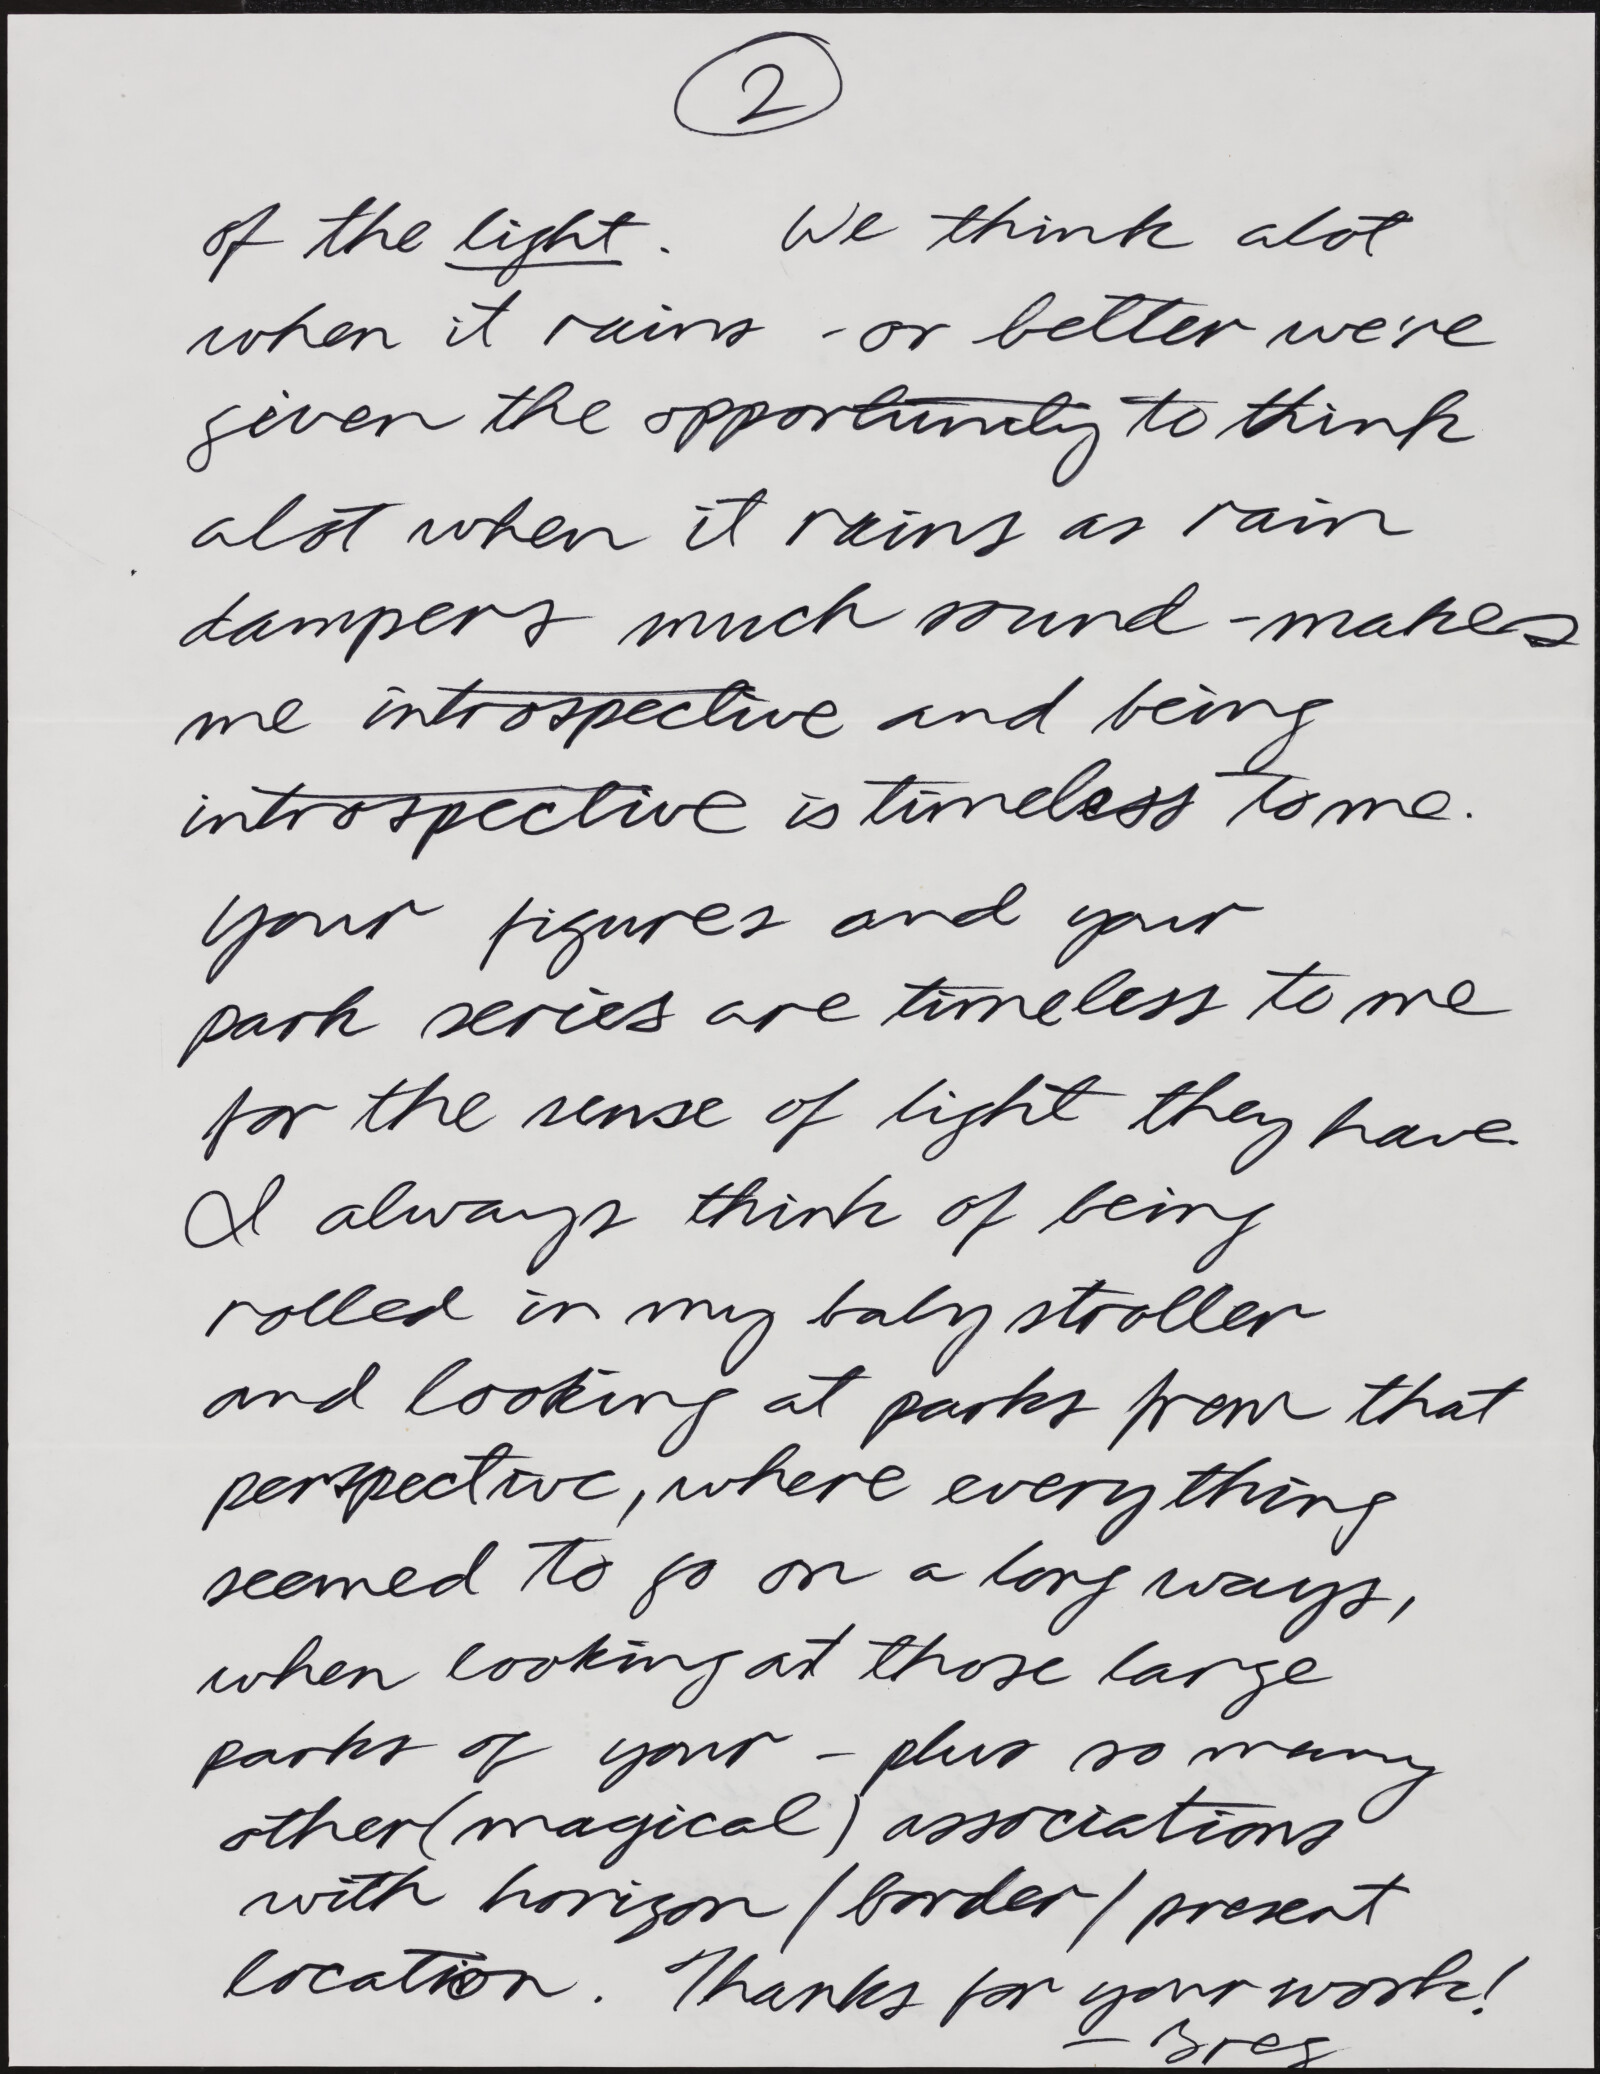 2
of the light. We think alot
when it rains - or better we're
given the opportunity to think
alot when it rains as rain
dampers much sound - makes
me introspective and being
introspective is timeless to me.
Your figures and your
park series are timeless to me
for the sense of light they have.
I always think of being
rolled in my baby stroller
and looking at parks from that
perspective, where everything
seemed to go on a long ways,
when looking at those large
parks of your - plus so many
other (magical) associations
with horizon / border / present
location. Thanks for your work!
- Greg